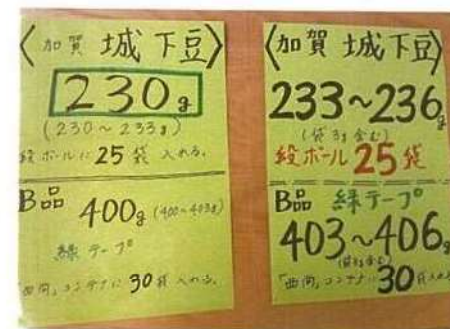 〈加賀 城下豆〉
230g
(230～233g)
段ボールに25袋 入れる。
B品 400g (400～403g)
緑テープ
「西向」コンテナに30袋入れる。
〈加賀 城下豆〉
233～236g
(袋3g含む)
段ボール25袋
B品 緑テープ
403～406g
(袋3g含む)
「西向」コンテナに30袋入れる